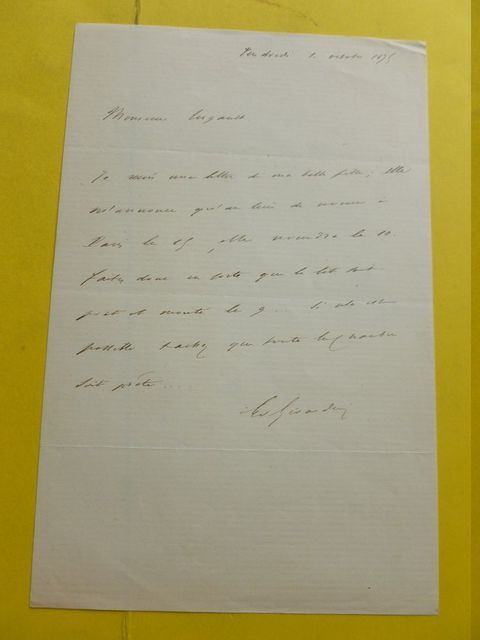 Vendredi 1. octobre 1875
Monsieur
Je reçois une lettre de ma belle fille; elle
m'annonce qu'au lieu de revenir à
Paris le 15, elle reviendra le 10.
Faites donc en sorte que le lit soit
pret et monté le 9... Si cela est
possible tachez que toute la chambre
soit prête....
Girardin